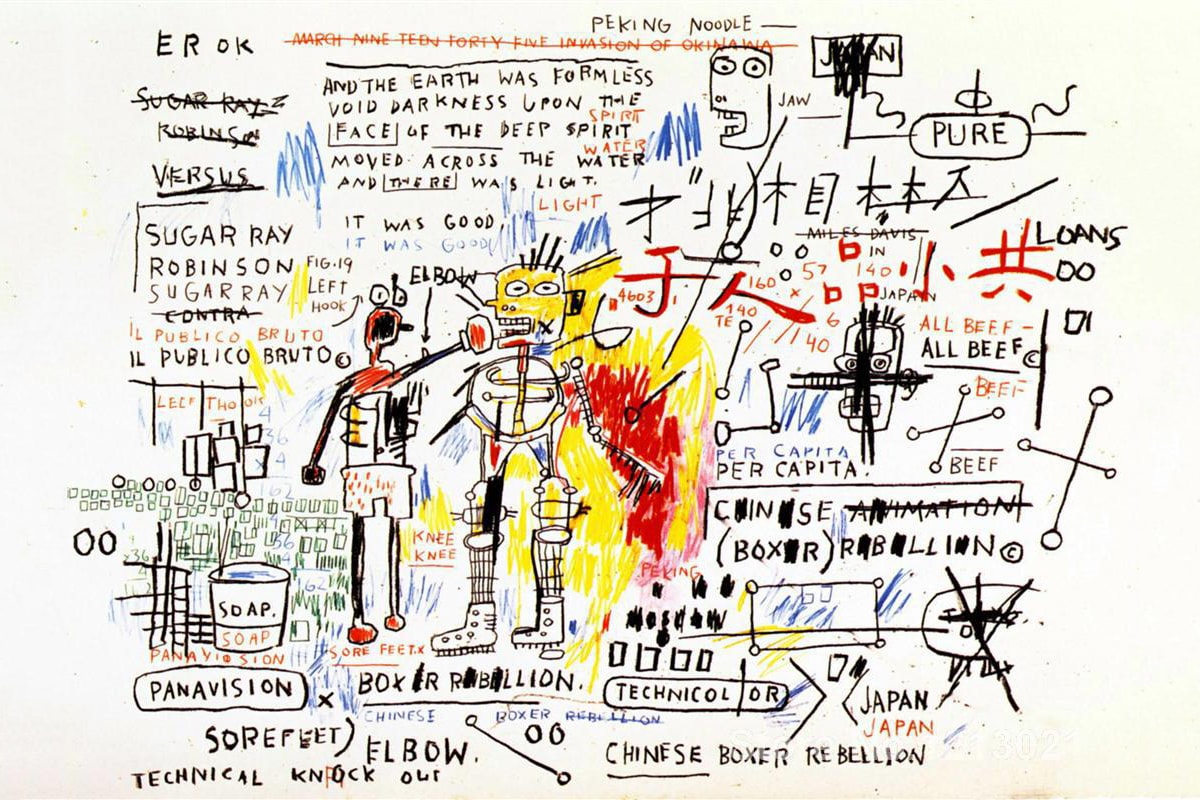 PEKING NOODLE
ER OK
MARCH NINE TEEN FORTY FIVE INVASION OF OKINAWA
JAPAN
AND THE EARTH WAS FORMLESS
SUGAR RAY
VOID DARKNESS UPON THE
JAW
ROBINSON
SPIRIT
FACE OF THE DEEP SPIRIT
PURE
WATER
MOVED ACROSS THE WATER
VERSUS
AND THERE WAS LIGHT.
LIGHT
IT WAS GOOD
IT WAS GOOD
SUGAR RAY
ROBINSON
SUGAR RAY
CONTRA
FIG. 19
LEFT
HOOK
ELBOW
MILES DAVIS
IN
140
JAPAN
LOANS
00
子人品小共
57
160 x
4603
140
TE
6
40
IL PUBLICO BRUTO
IL PUBLICO BRUTO©
ALL BEEF -
ALL BEEF©
BEEF
BEEF
4
36
x 4
162
PER CAPITA
PER CAPITA.
CHINESE ANIMATION
(BOXER) REBELLION©
00
x36
36
62
KNEE
KNEE
PEKING
MOSCOW
SOAP.
SOAP
PANAVISION
SORE FEET.x
PANAVISION x BOXER REBELLION.
TECHNICOLOR
JAPAN
JAPAN
CHINESE BOXER REBELLION
SOREFEET) ELBOW.
00
CHINESE BOXER REBELLION
TECHNICAL KNOCK OUT